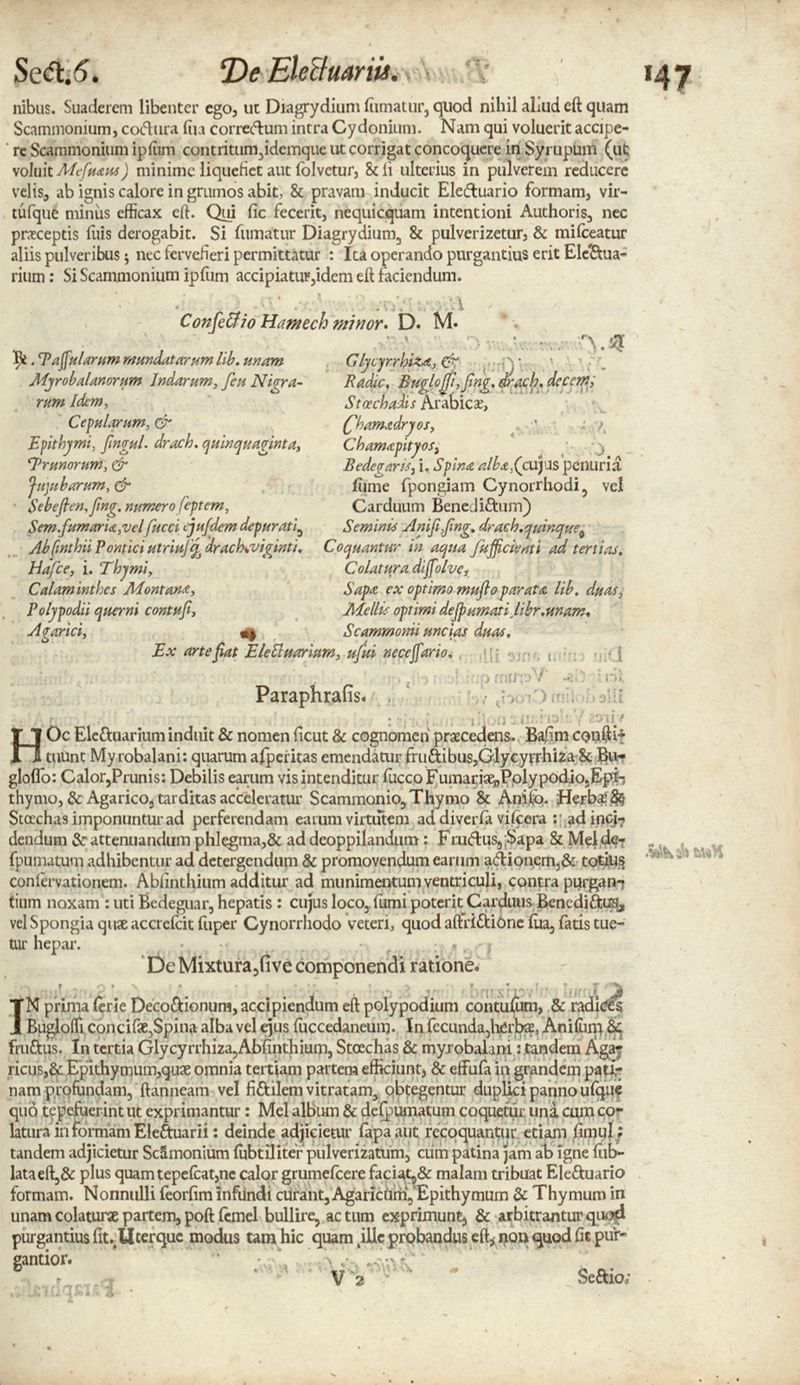 Sect.6. De Electuariis. 147
nibus. Suaderem libenter ego, ut Diagrydium ſumatur, quod nihil aliud eſt quam
Scammonium, coctura ſua correctum intra Cydonium. Nam qui voluerit accipe-
re Scammonium ipſum contritum,idemque ut corrigat concoquere in Syrupum (ut
voluit Meſuæus) minimè liquefiet aut ſolvetur, & ſi ulterius in pulverem reducere
velis, ab ignis calore in grumos abit, & pravam inducit Electuario formam, vir-
túſque minùs efficax eſt. Qui ſic fecerit, nequicquam intentioni Authoris, nec
præceptis ſuis derogabit. Si ſumatur Diagrydium, & pulverizetur, & miſceatur
aliis pulveribus; nec fervefieri permittatur : Ita operando purgantius erit Electua-
rium : Si Scammonium ipſum accipiatur,idem eſt faciendum.
Confectio Hamech minor. D. M.
℞. Paſſularum mundatarum lib. unam
Myrobalanorum Indarum, ſeu Nigra-
rum Idem,
Cepularum, &
Epithymi, ſingul. drach. quinquaginta,
Prunorum, &
Jujubarum, &
Sebeſten, ſing. numero ſeptem,
Sem.fumariæ,vel ſucci ejuſdem depurati,
Abſinthii Pontici utriuſq; drach.viginti.
Haſce, i. Thymi,
Calaminthes Montanæ,
Polypodii querni contuſi,
Agarici,
Glycyrrhizæ, &
Radic. Bugloſſi, ſing. drach. decem,
Stœchadis Arabicæ,
Chamædryos,
Chamæpityos,
Bedegaris, i. Spinæ albæ,(cujus penuriâ
ſume ſpongiam Cynorrhodi, vel
Carduum Benedictum)
Seminis Aniſi,ſing. drach.quinque,
Coquantur in aqua ſufficienti ad tertias.
Colatura diſſolve,
Sapæ ex optimo muſto parata lib. duas,
Mellis optimi deſpumati libr.unam.
Scammonii uncias duas.
Ex arte fiat Electuarium, uſui neceſſario.
Paraphraſis.
HOc Electuarium induit & nomen ſicut & cognomen præcedens. Baſim conſti-
tuunt Myrobalani: quarum aſperitas emendatur fructibus,Glycyrrhiza & Bu-
gloſſo: Calor,Prunis: Debilis earum vis intenditur ſucco Fumariæ,Polypodio,Epi-
thymo, & Agarico, tarditas acceleratur Scammonio, Thymo & Aniſo. Herbæ &
Stœchas imponuntur ad perferendam earum virtutem ad diverſa viſcera : ad inci-
dendum & attenuandum phlegma,& ad deoppilandum : Fructus, Sapa & Mel de-
ſpumatum adhibentur ad detergendum & promovendum earum actionem,& totius
conſervationem. Abſinthium additur ad munimentum ventriculi, contra purgan-
tium noxam : uti Bedeguar, hepatis : cujus loco, ſumi poterit Carduus Benedictus,
vel Spongia quæ accreſcit ſuper Cynorrhodo veteri, quod aſtrictióne ſua, ſatis tue-
tur hepar.
De Mixtura,ſive componendi ratione.
IN prima ſerie Decoctionum, accipiendum eſt polypodium contuſum, & radices
Bugloſſi conciſæ,Spina alba vel ejus ſuccedaneum. In ſecunda,herbæ, Aniſum &
fructus. In tertia Glycyrrhiza,Abſinthium, Stœchas & myrobalani : tandem Aga-
ricus,& Epithymum,quæ omnia tertiam partem efficiunt, & effuſa in grandem pati-
nam profundam, ſtanneam vel fictilem vitratam, obtegentur duplici panno uſque
quò tepefuerint ut exprimantur : Mel album & deſpumatum coquetur unà cum co-
latura in formam Electuarii : deinde adjicietur ſapa aut recoquantur etiam ſimul;
tandem adjicietur Scãmonium ſubtiliter pulverizatum, cùm patina jam ab igne ſub-
lata eſt,& plus quam tepeſcat,ne calor grumeſcere faciat,& malam tribuat Electuario
formam. Nonnulli ſeorſim infundi curant,Agaricum, Epithymum & Thymum in
unam colaturæ partem, poſt ſemel bullire, ac tum exprimunt, & arbitrantur quod
purgantius ſit. Uterque modus tam hic quam ille probandus eſt, non quod ſit pur-
gantior.
V 2 Sectio.